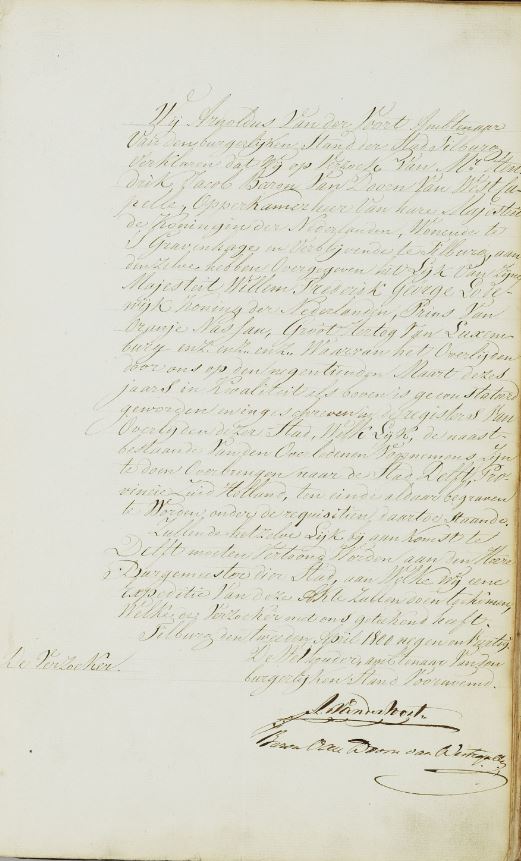 Wij Arnoldus Van der Voort Ambtenaar
Van den burgerlyken Stand der Stad Tilburg
Verklaren dat Wij op Verzoek Van Mr Hen-
drik Jacob Baron Van Doorn Van West Ca-
pelle, Opperkamerheer Van hare Majesteit
de Koningin der Nederlanden, Wonende te
S Gravenhage en Verblijvende te Tilburg, aan
denzelve hebben Overgegeven het Lijk Van Zyne
Majesteit Willem Frederik George Lode-
wijk Koning der Nederlanden, Prins Van
Oranje Nassau, Groot Hertog Van Luxem-
burg enz enz enz. Waarvan het Overlyden
door ons op den negentienden Maart dezes
jaars in Kwaliteit als boven is geconstateerd
geworden en ingeschreven in de registers Van
Overlijden dezer Stad, Welk Lijk, de naast-
bestaande Van den Overledenen Voornemens zijn
te doen Overbrengen naar de Stad Delft, Pro-
vincie Zuid Holland, ten einde aldaar begraven
te Worden, onder de requisitien daartoe Staande.
Zullende hetzelve Lijk bij aankomst te
Delft moeten Vertoond Worden aan den Heere
Burgemeester dier Stad, aan Welke Wij eene
Expeditie Van deze Akte Zullen doen toekomen,
Welke de Verzoeker met ons geteekend heeft.
Tilburg den tweeden April 1800 negen en Veertig.
De Verzoeker.
De Wethouder, ambtenaar Van den
burgerlijken Stand Voornoemd.
Vandervoort
Baron van Doorn van Westcapelle